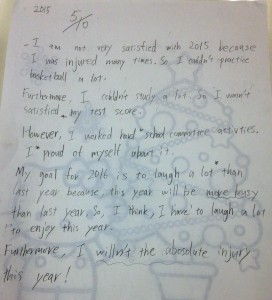 2015
5/10
- I am not very satisfied with 2015 because
I was injured many times. So I couldn't practice
basketball a lot.
Furthermore, I couldn't study a lot. So I wasn't
satisfied my test score.
However, I worked hard school committee activities.
I proud of myself about it.
My goal for 2016 is to laugh a lot than
last year because this year will be more busy
than last year. So, I think, I have to laugh a lot
to enjoy this year.
Furthermore, I the abosolute injury
this year!